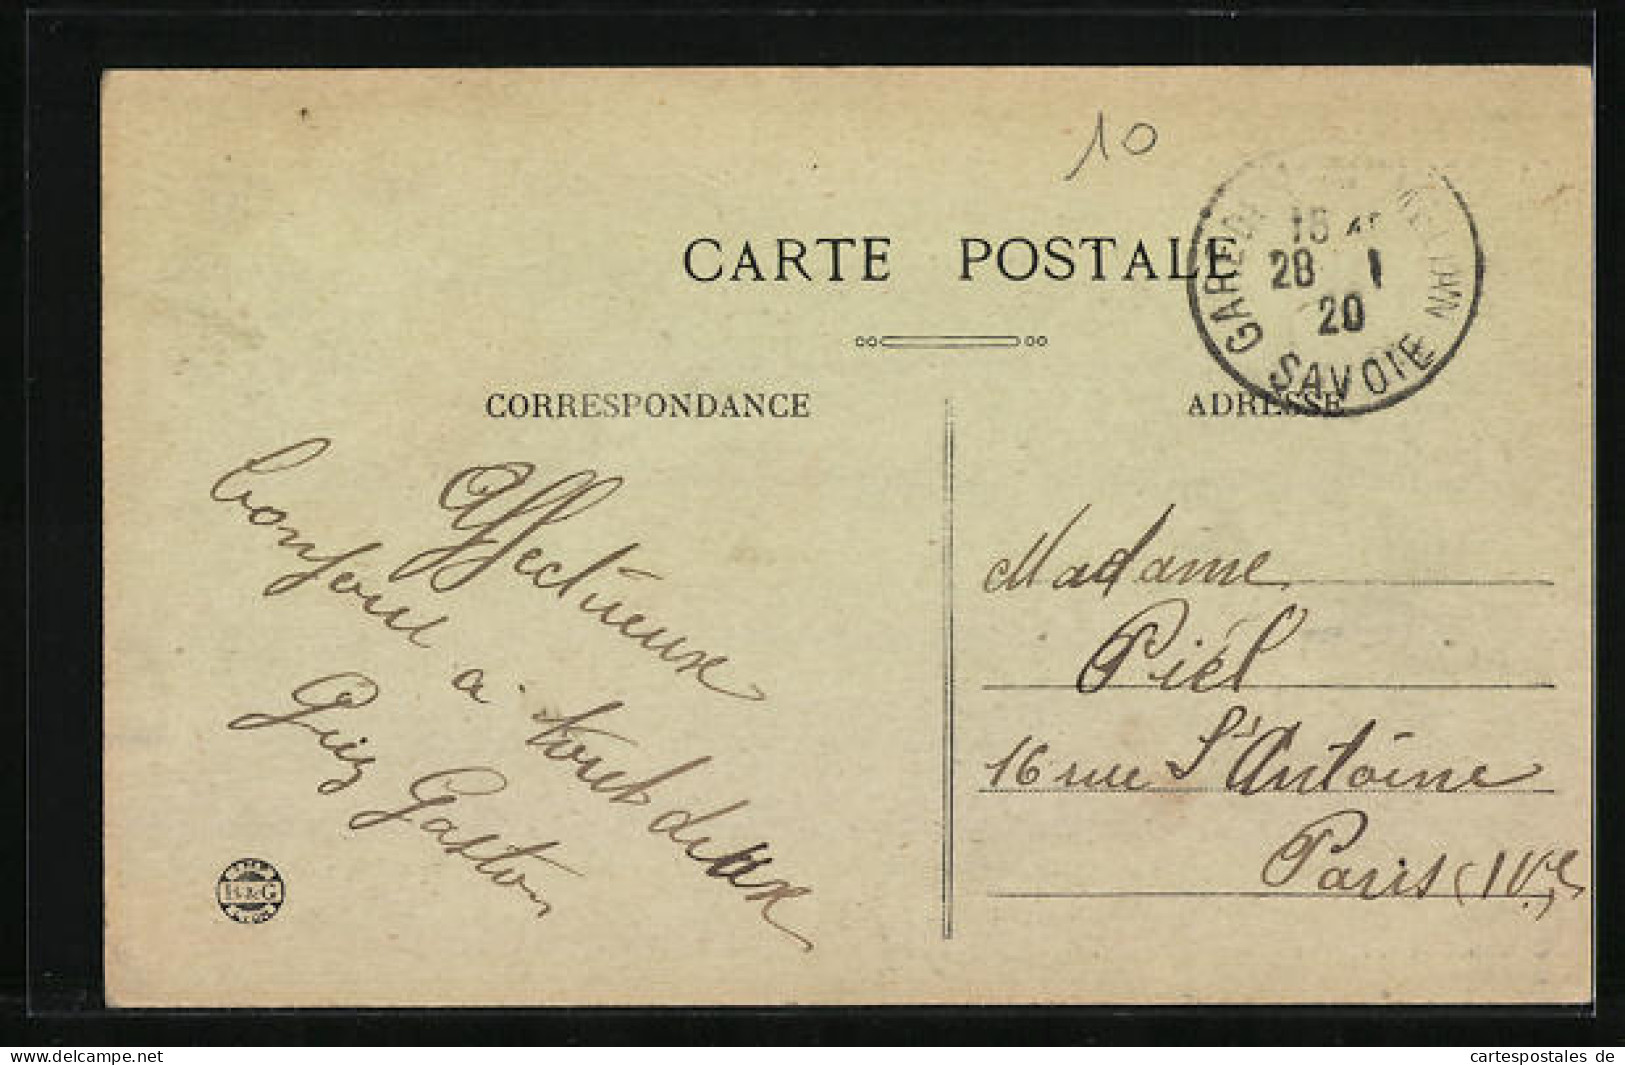 10
CARTE POSTALE
GARE DE
28 1
20
SAVOIE
CORRESPONDANCE
ADRESSE
Affectueux
bonjour
à tous deux
Gaston
Madame
Piél
16 rue St Antoine
Paris (IVe)
B & G
LYON
www.cpantiques.com
cartespostales de